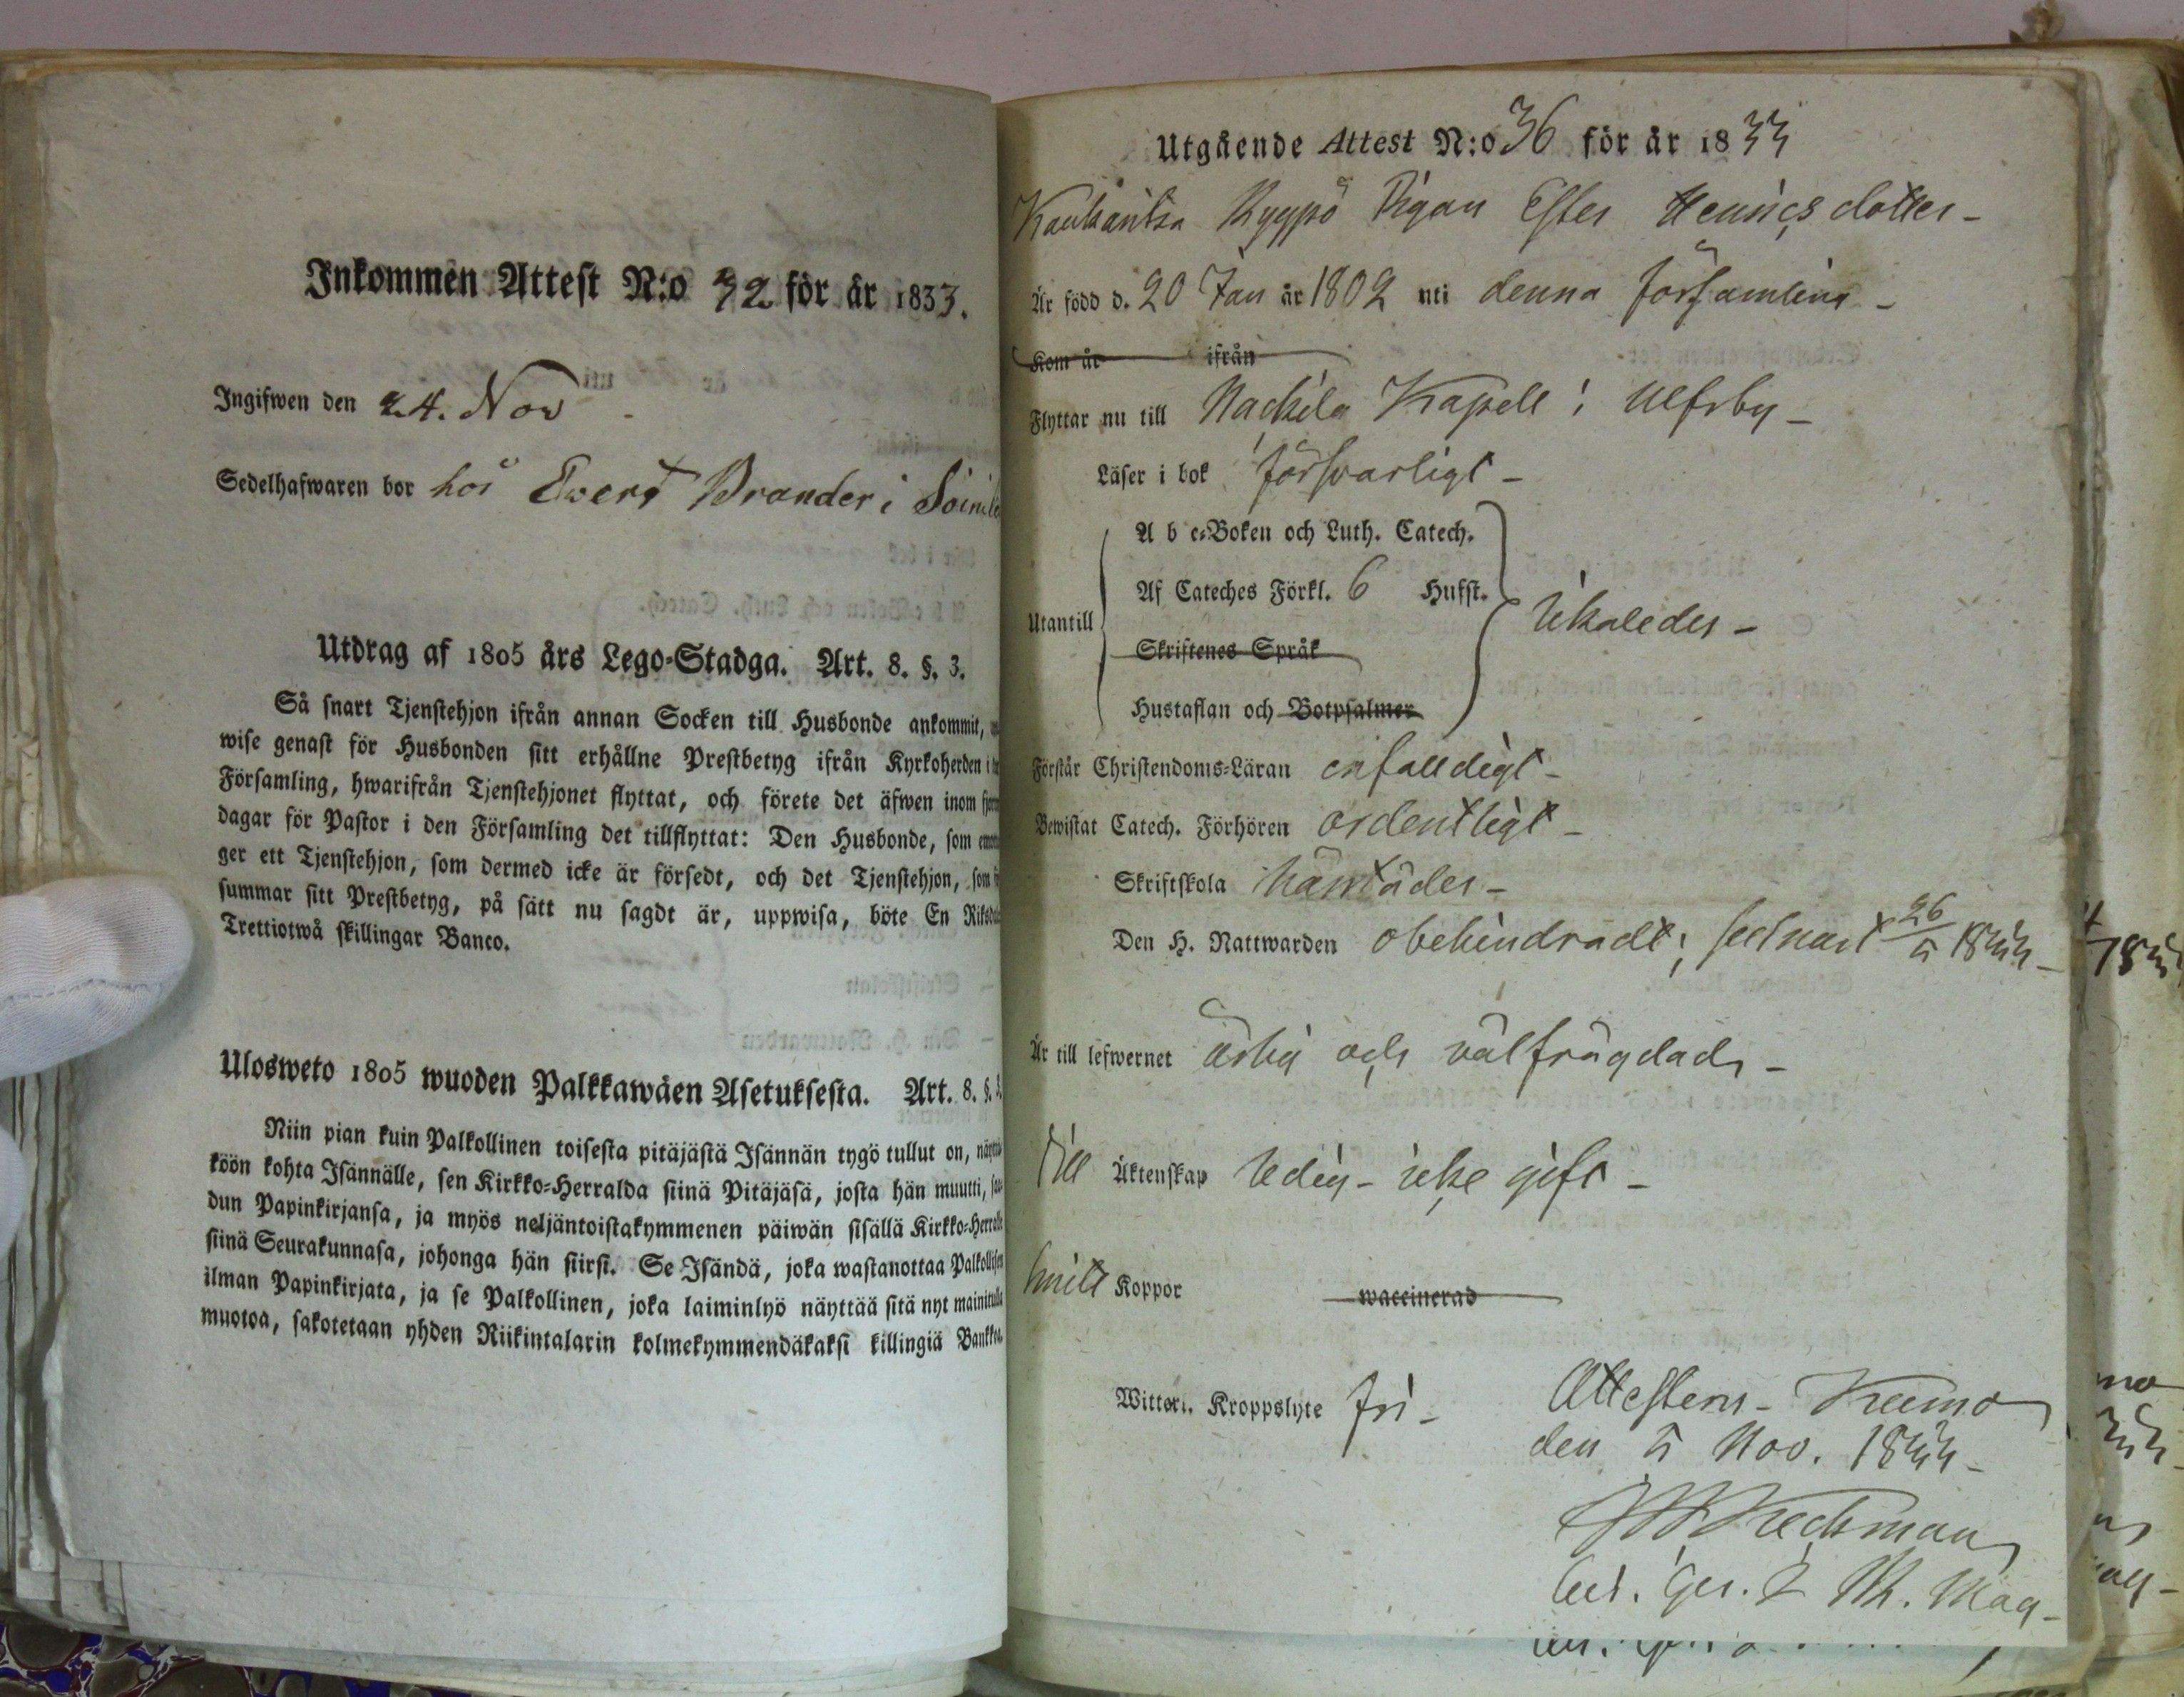 Inkommen Attest N:o 32 för år 1833.
Ingifwen den 24. Nov
Sedelhafwaren bor hos Evert Brander i
Utdrag af 1805 års Lego-Stadga. Art. 8. §. 3.
Så snart Tjenstehjon ifrån annan Socken till Husbonde ankommit,
wise genast för Husbonden sitt erhållne Prestbetyg ifrån Kyrkoherden i
Församling, hwarifrån Tjenstehjonet flyttat, och förete det äfwen inom
dagar för Pastor i den Församling det tillflyttat: Den Husbonde, som
ger ett Tjenstehjon, som dermed icke är försedt, och det Tjenstehjon, som
summar sitt Prestbetyg, på sätt nu sagdt är, uppwisa, böte En
Trettiotwå skillingar Banco.
Ulosweto 1805 wuoden Palkkawäen Asetuksesta. Art. 8. §. 3.
Niin pian kuin Palkollinen toisesta pitäjästä Isännän tygö tullut on,
köön kohta Isännälle, sen Kirkko-Herralda siinä Pitäjäsä, josta hän muutti,
dun Papinkirjansa, ja myös neljäntoistakymmenen päiwän sisällä Kirkko-Herralle
siinä Seurakunnasa, johonga hän siirsi. Se Isändä, joka wastanottaa Palkollisen
ilman Papinkirjata, ja se Palkollinen, joka laiminlyö näyttää sitä nyt mainitulla
muotoa, sakotetaan yhden Riikintalarin kolmekymmendäkaksi killingiä
Utgående Attest N:o 36 för år 1833
Pigan Ester Henricsdotter -
Är född d. 20 Jan år 1802 uti denna församling -
Kom år ifrån
Flyttar nu till Nackila Kapell i Ulfsby -
Läser i bok försvarligt -
A b c-Boken och Luth. Catech.
Af Cateches Förkl. 6 Hufst.
Utantill likaledes -
Skriftenes Språk
Hustaflan och Botpsalmer
Förstår Christendoms-Läran enfalldigt -
Bewistat Catech. Förhören ordentligt -
Skriftskola
Den H. Nattwarden obehindradt, sednast 26/5 1833 -
Är till lefwernet ärlig och välfrägdad -
Till Äktenskap ledig - icke gift -
haft Koppor waccinerad
Witterl. Kroppslyte fri -
Attesteras - Kumo
den 5 Nov. 1833 -